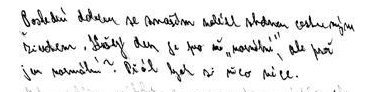 Poslední dobou se snažím nalézt shodnou cestu mým
životem. Každý den je pro mě „normální“, ale proč
jen normální? Přál bych si něco více.